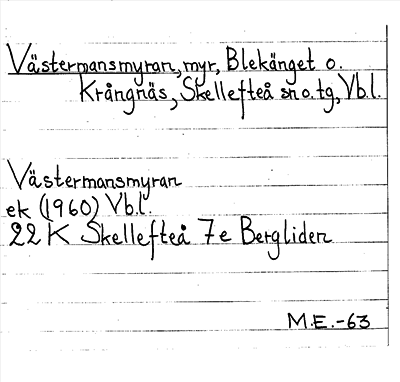 Västermansmyran, myr, Blekänget o.
Krångnäs, Skellefteå sn o. tg, Vb.l.
Västermansmyran
ek (1960) Vb.l.
22 K Skellefteå 7e Bergliden
M.E.-63